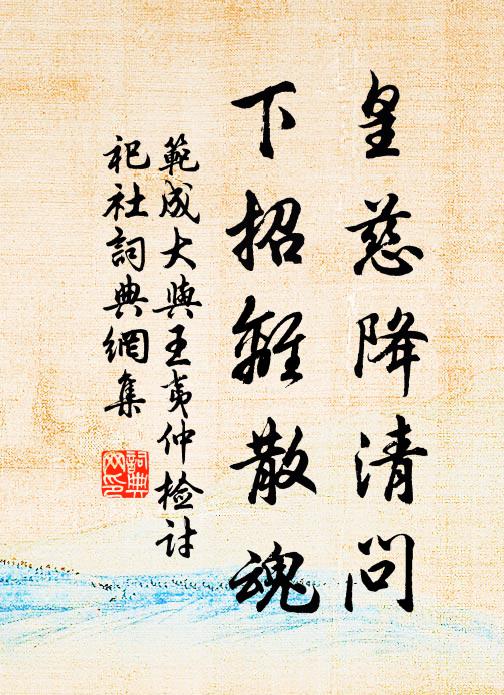 皇慈降清問
下招離散魂
範成大與王夷仲檢討
祀社詞典網集
詞典網印